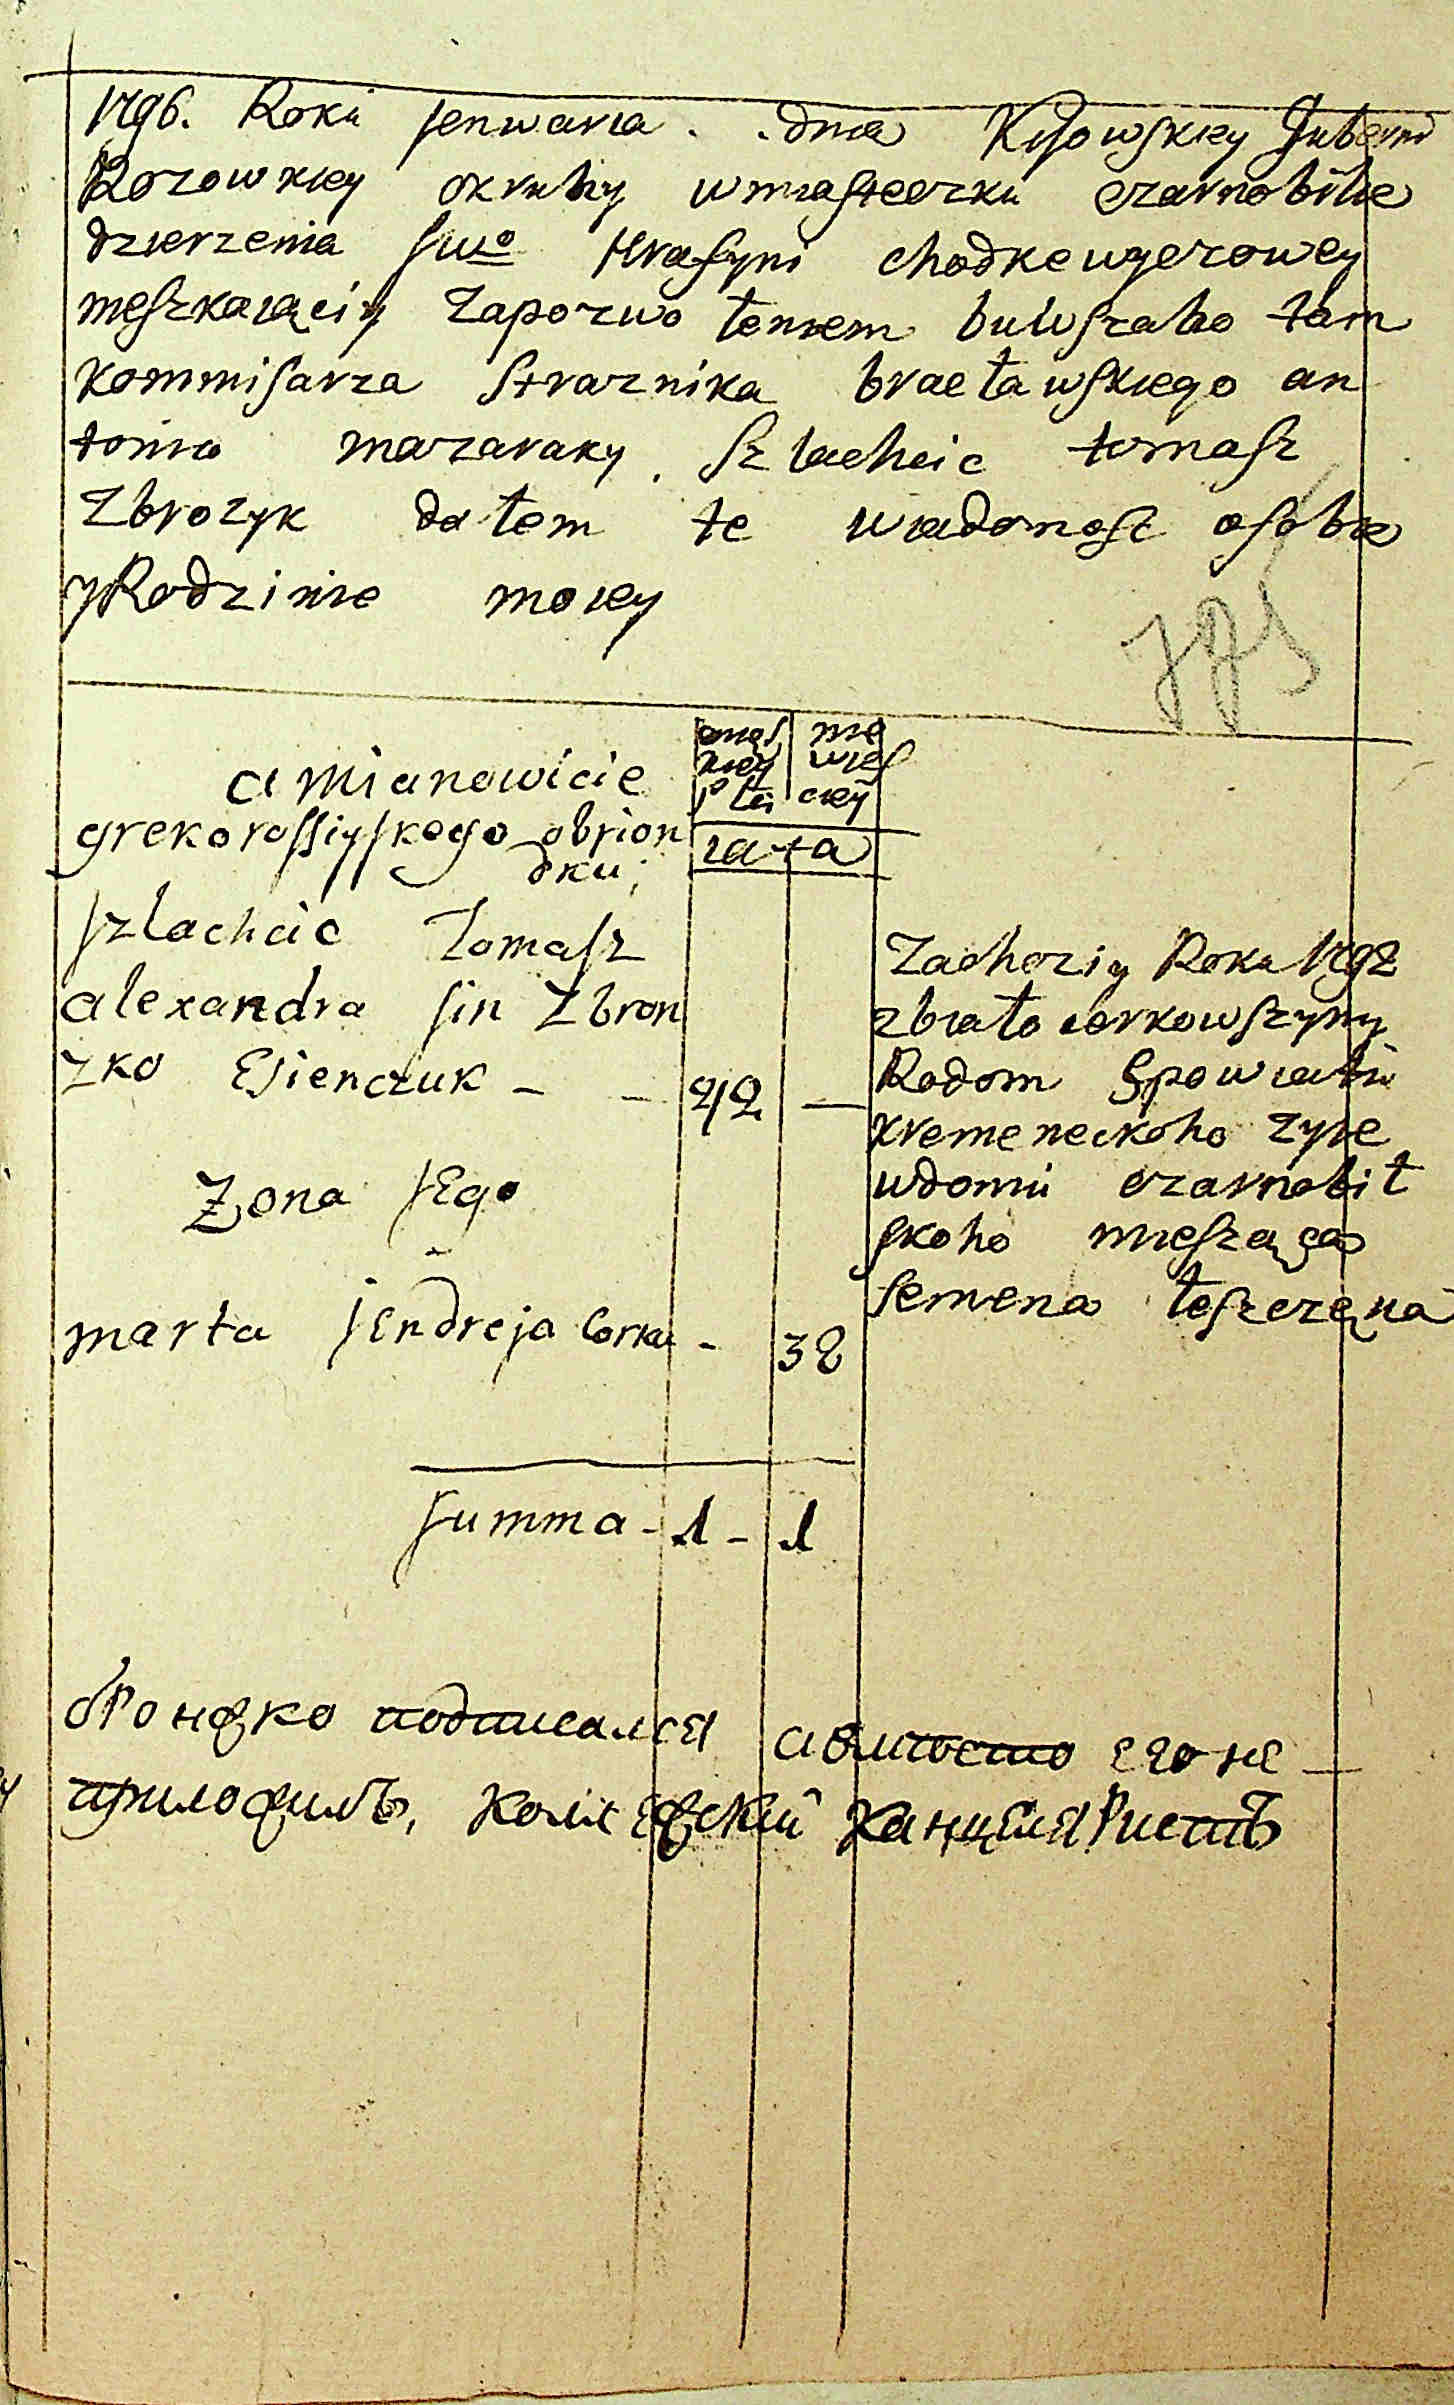 1796. Roku Jenwaria . . dnia Kijowskiey Guberni
Rozowkiey okruhy wmiasteczku czarnobilie
dzierzenia Jwo Hrafyni chodkewyczowey
meszkaiąciy zapozwo łeniem buwszaho tam
kommisarza Straznika bracławskiego an
tonia mazaraky. Szlachcic tomasz
Zbrozyk dałem te wiadomosc osobie
yRodzinie moiey
a mianowicie
grekorossiyskego obrion
dku;
męs kiey płci
nie wies ciey
lata
szlachcic Tomasz
alexandra sin Zbron
zko Esienczuk - - 42 —
Zona Jego
marta Jendreja Corka - 32
Zachoziy Roku 1792
zbiało cerkowszyny
Rodom Spowiatu
kremeneckoho zyie
wdomu czarnobił
skoho mieszcząca
semena łeszczęna
Summa - 1 - 1
бронзко подписался а въместо его не
приложилъ, колежский канцеляристъ